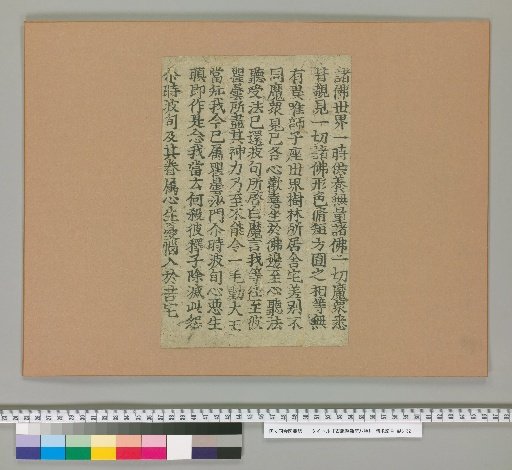 諸佛世界一時供養無量諸佛一切魔衆悉
皆觀見一切諸佛形色脩短方圓之相等無
有異唯師子座世界樹林所居舍宅差別不
同魔衆見已各心歡喜坐於佛邊至心聽法
聽受法已還波旬所啓白魔言我等往至彼
瞿曇所盡其神力乃至不能令一毛動大王
當知我今已屬瞿曇沙門尒時波旬心悪生
瞋即作是念我當云何殺彼釋子除滅此怨
尒時波旬及其眷属心生𢙉惱入於吾宅